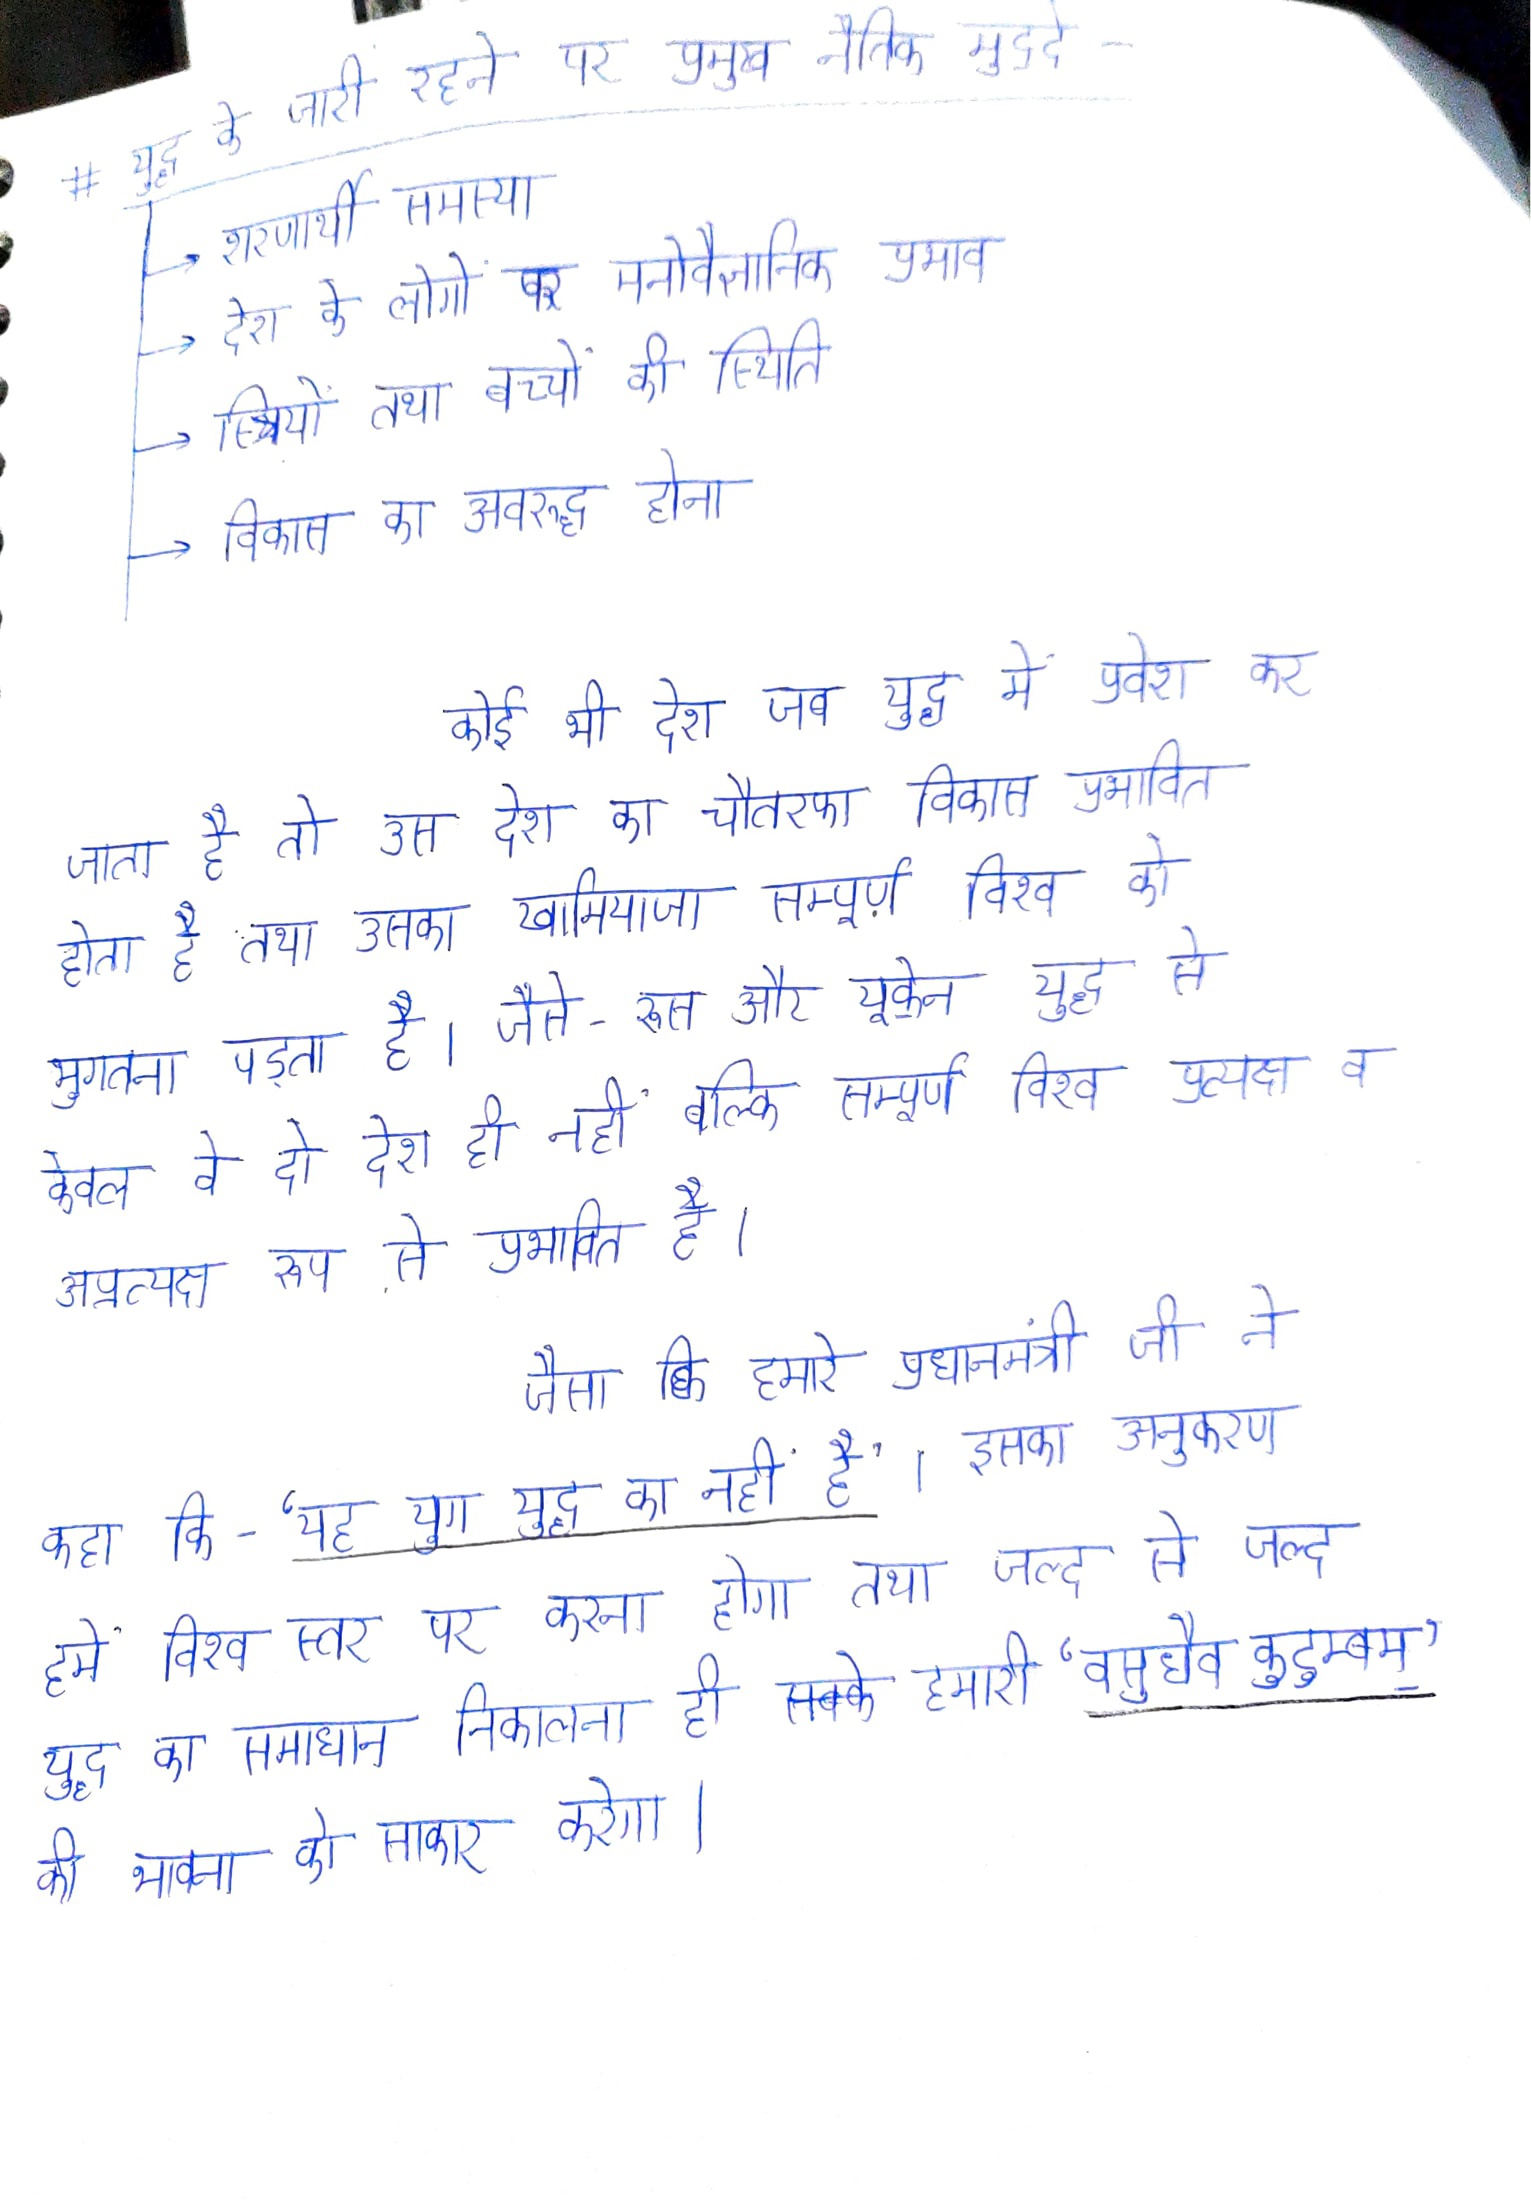 # युद्ध के जारी रहने पर प्रमुख नैतिक मुद्दे -
→ शरणार्थी समस्या
→ देश के लोगों पर मनोवैज्ञानिक प्रभाव
→ स्त्रियों तथा बच्चों की स्थिति
→ विकास का अवरुद्ध होना
कोई भी देश जब युद्ध में प्रवेश कर
जाता है तो उस देश का चौतरफा विकास प्रभावित
होता है तथा उसका खामियाजा सम्पूर्ण विश्व को
भुगतना पड़ता है। जैसे - रूस और यूक्रेन युद्ध से
केवल वे दो देश ही नहीं बल्कि सम्पूर्ण विश्व प्रत्यक्ष व
अप्रत्यक्ष रूप से प्रभावित है।
जैसा कि हमारे प्रधानमंत्री जी ने
कहा कि - 'यह युग युद्ध का नहीं है'। इसका अनुकरण
हमें विश्व स्तर पर करना होगा तथा जल्द से जल्द
युद्ध का समाधान निकालना ही हमारी 'वसुधैव कुटुम्बकम्'
की भावना को साकार करेगा।